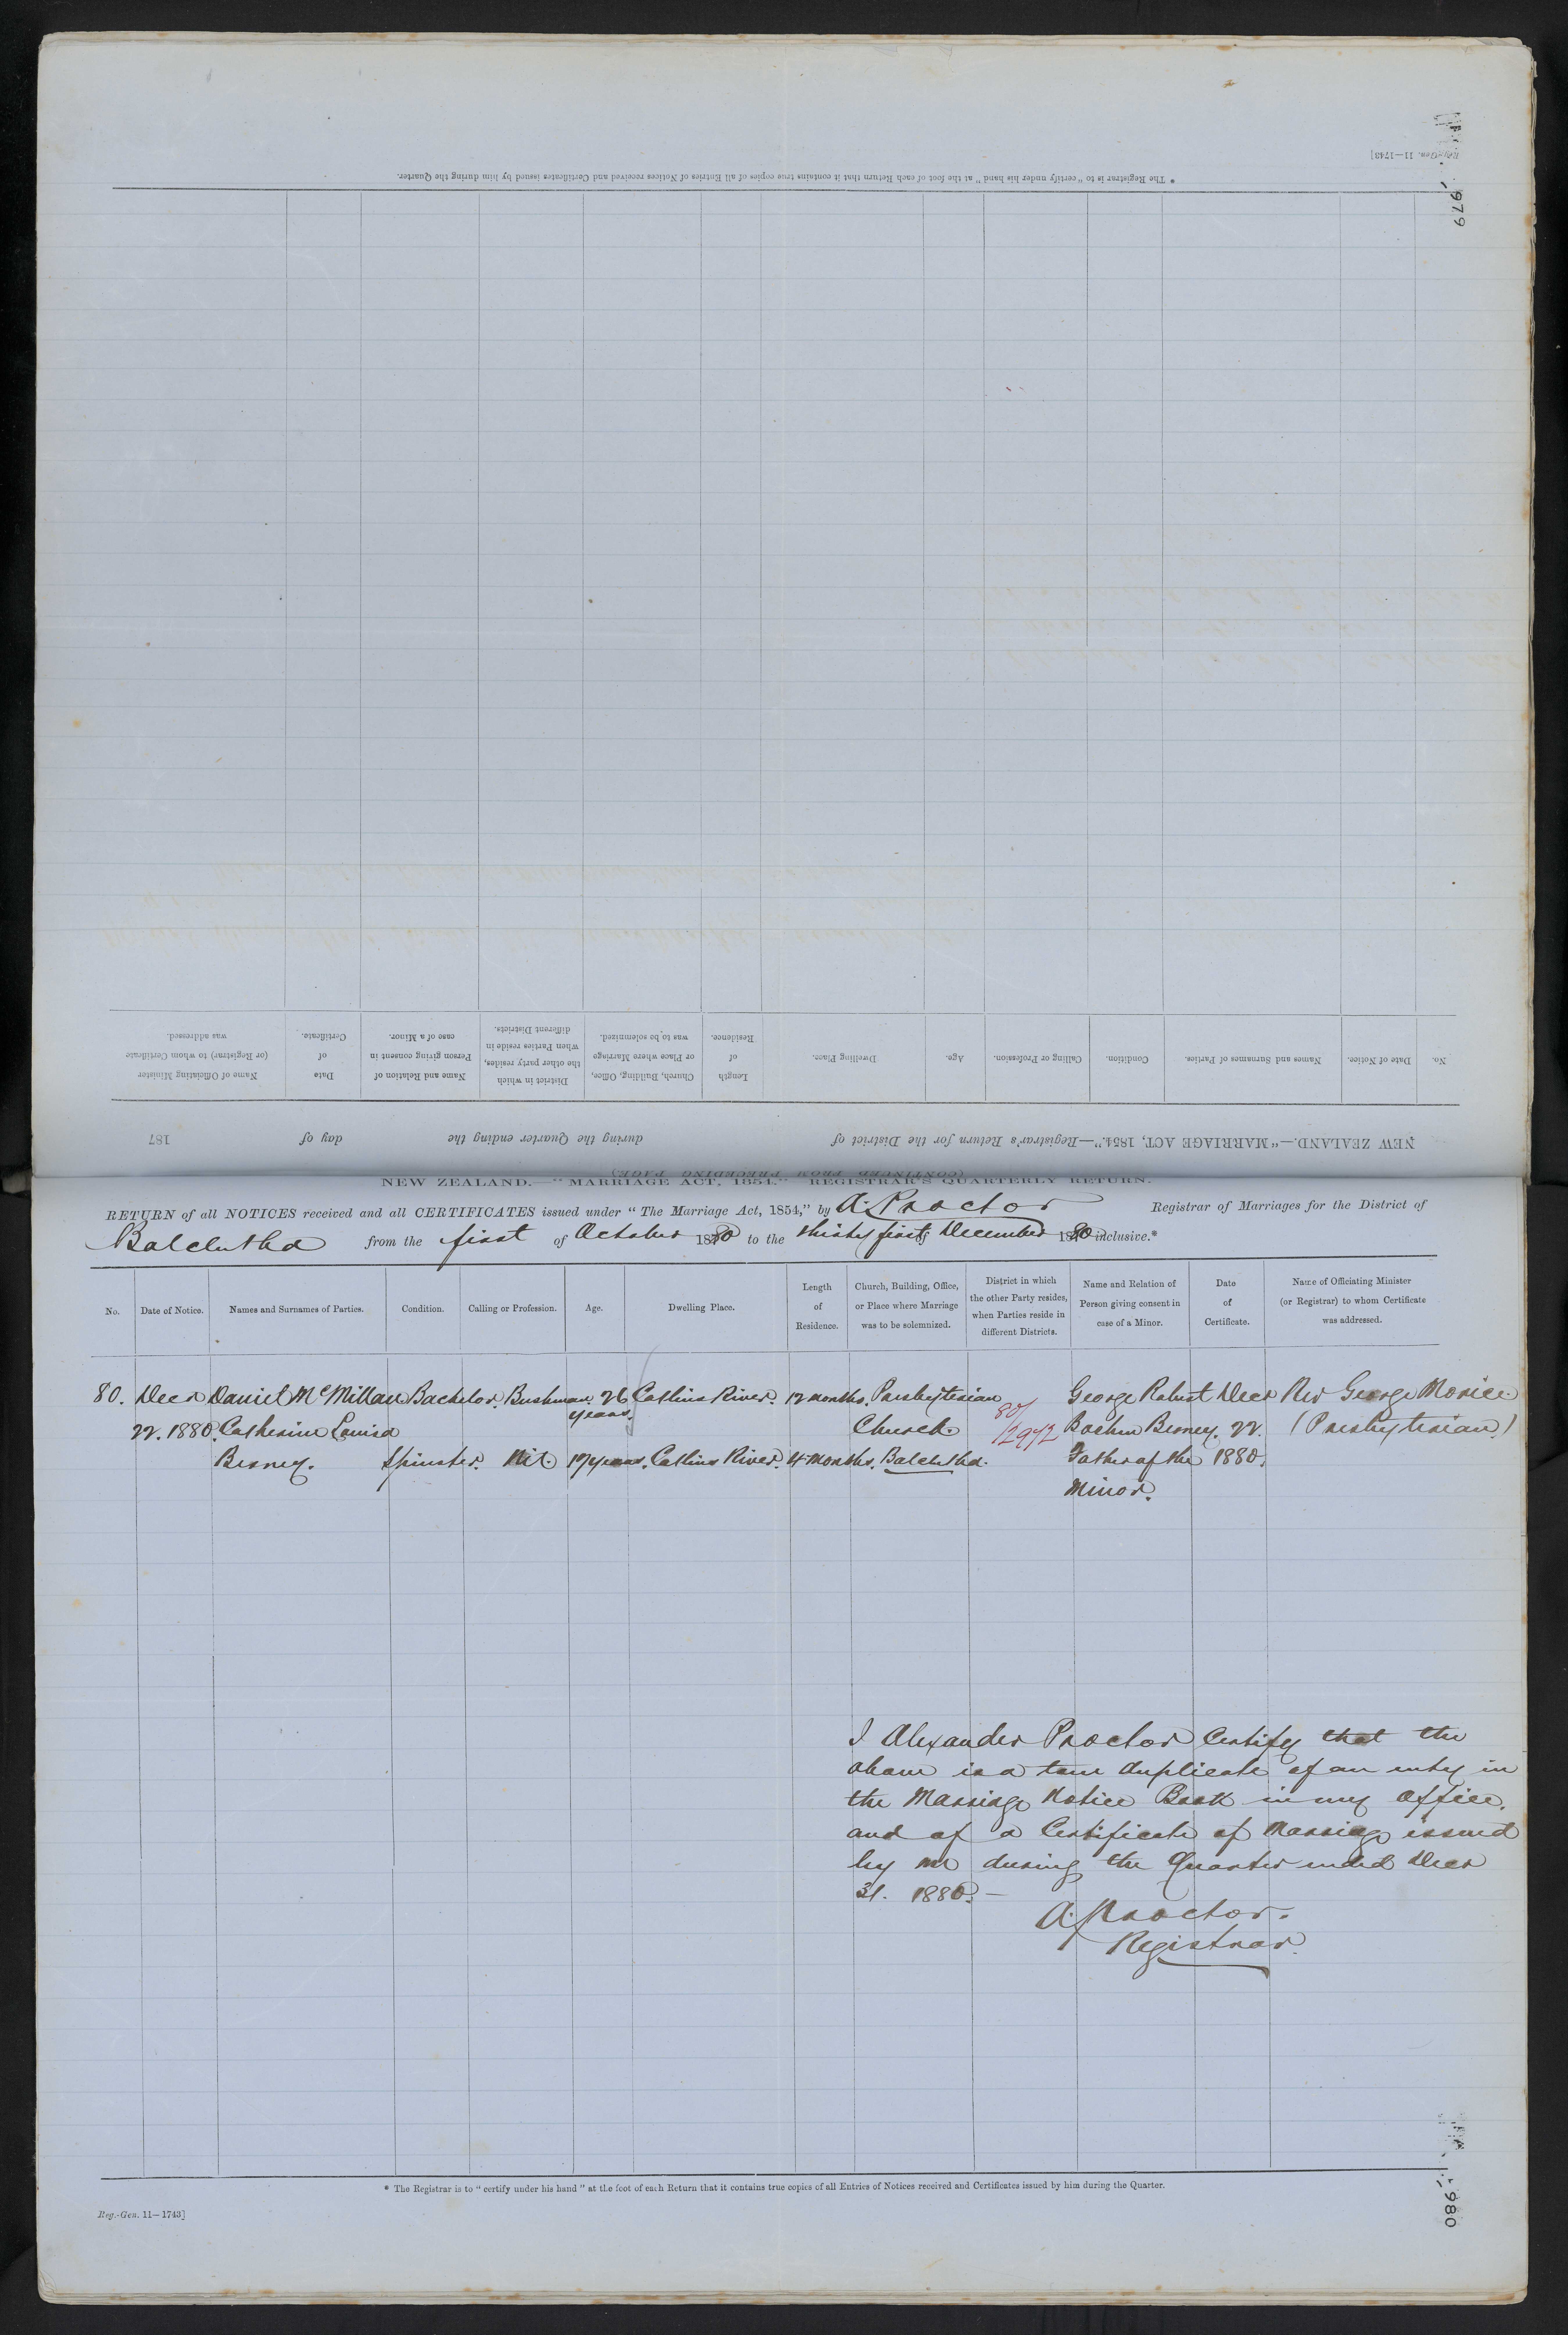 Reg.-Gen. 11—1743]
979
* The Registrar is to "certify under his hand" at the foot of each Return that it contains true copies of all Entries of Notices received and Certificates issued by him during the Quarter.
No.
Date of Notice.
Names and Surnames of Parties.
Condition.
Calling or Profession.
Age.
Dwelling Place.
Length
of
Residence.
Church, Building, Office,
or Place where Marriage
was to be solemnized.
District in which
the other party resides,
when Parties reside in
different Districts.
Name and Relation of
Person giving consent in
case of a Minor.
Date
of
Certificate.
Name of Officiating Minister
(or Registrar) to whom Certificate
was addressed.
NEW ZEALAND.—"MARRIAGE ACT, 1854."—Registrar's Return for the District of during the Quarter ending the day of 187
(CONTINUED FROM PRECEDING PAGE)
NEW ZEALAND.—"MARRIAGE ACT, 1854." REGISTRAR'S QUARTERLY RETURN.
RETURN of all NOTICES received and all CERTIFICATES issued under "The Marriage Act, 1854," by A. Proctor Registrar of Marriages for the District of
Balclutha from the first of October 1880 to the thirty first of December 1880 inclusive.*
No.
Date of Notice.
Names and Surnames of Parties.
Condition.
Calling or Profession.
Age.
Dwelling Place.
Length
of
Residence.
Church, Building, Office,
or Place where Marriage
was to be solemnized.
District in which
the other Party resides,
when Parties reside in
different Districts.
Name and Relation of
Person giving consent in
case of a Minor.
Date
of
Certificate.
Name of Officiating Minister
(or Registrar) to whom Certificate
was addressed.
80. Decr Daniel McMillan Bachelor. Bushman. 26 Catlins River. 12 months. Presbyterian George Robert Decr Rev George Morice
years. 80/
22. 1880. Catherine Louisa Church. 2972 Berney. 22. (Presbyterian)
Berney. Spinster. Nil. 17 years. Catlins River. 4 months. Balclutha. Father of the 1880.
Minor.
I Alexander Proctor Certify that the
above is a true duplicate of an entry in
the Marriage Notice Book in my office,
and of a Certificate of Marriage issued
by me during the Quarter ended Decr
31. 1880.—
A. Proctor.
Registrar.
* The Registrar is to "certify under his hand" at the foot of each Return that it contains true copies of all Entries of Notices received and Certificates issued by him during the Quarter.
Reg.-Gen. 11—1743]
980